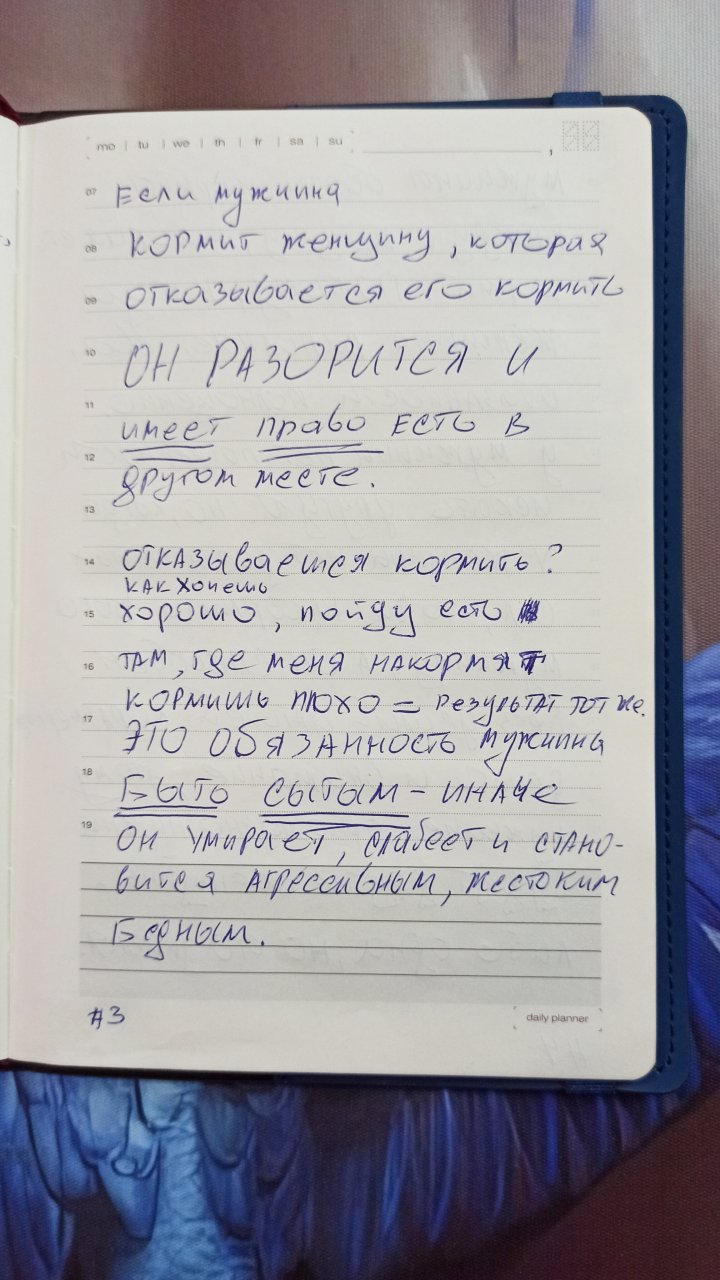 mo | tu | we | th | fr | sa | su
07 Если мужчина
08 кормит женщину, которая
09 отказывается его кормить
10 ОН РАЗОРИТСЯ И
11 имеет право ЕСТЬ В
12 другом месте.
13
14 ОТКАЗЫваешься кормить?
как хочешь
15 хорошо, пойду есть
16 ТАМ, где меня НАКОРМЯТ
КОРМИШЬ ПЛОХО = РЕЗУЛЬТАТ ТОТ же.
17 ЭТО ОБЯЗАННОСТЬ мужчины
18 БЫТЬ СЫТЫМ - ИНАЧЕ
19 ОН УМИРАЕТ, слабеет и СТАНО-
вится АГРЕССИВНЫМ, ЖЕСТОКИМ
Бедным.
#3
daily planner